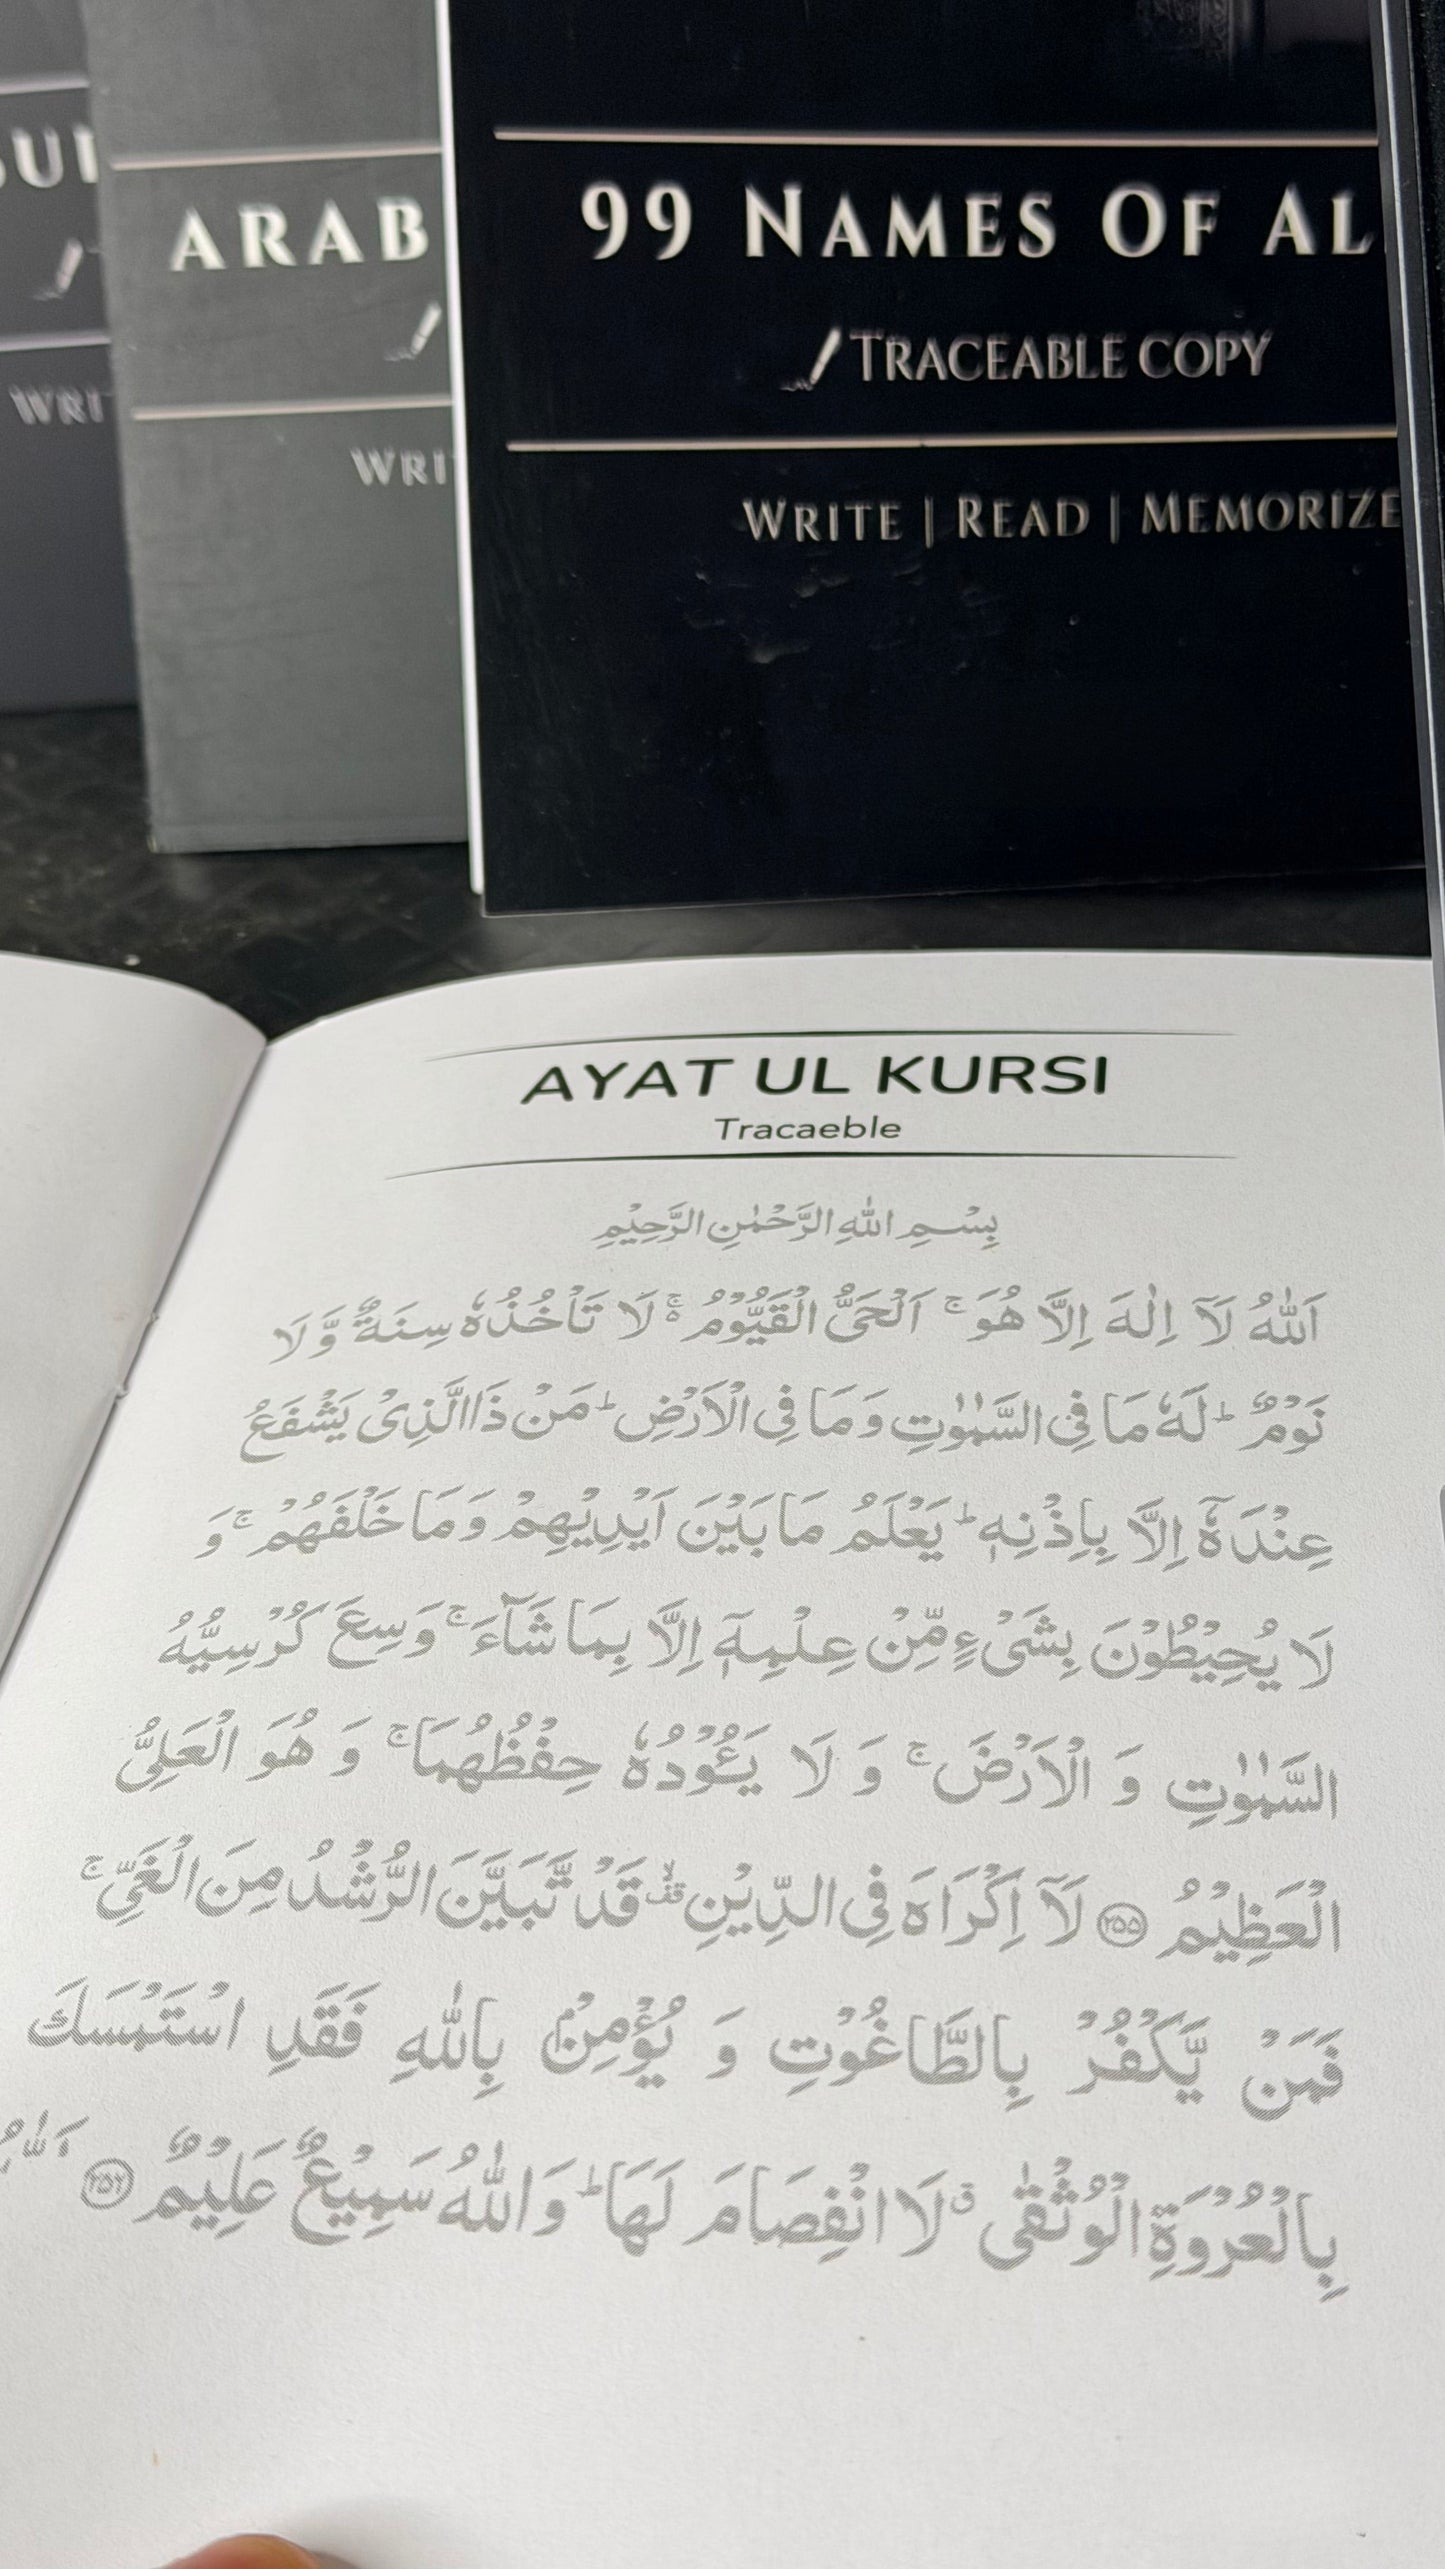 ARAB
WRI
99 NAMES OF AL
TRACEABLE COPY
WRITE | READ | MEMORIZE
WRI
AYAT UL KURSI
Tracaeble
بِسْمِ اللهِ الرَّحْمٰنِ الرَّحِيْمِ
اَللّٰهُ لَاۤ اِلٰهَ اِلَّا هُوَۚ اَلْحَیُّ الْقَیُّوْمُ ۚ۬ لَا تَاْخُذُهٗ سِنَةٌ وَّ لَا
نَوْمٌؕ لَهٗ مَا فِی السَّمٰوٰتِ وَ مَا فِی الْاَرْضِؕ مَنْ ذَا الَّذِیْ یَشْفَعُ
عِنْدَهٗۤ اِلَّا بِاِذْنِهٖؕ یَعْلَمُ مَا بَیْنَ اَیْدِیْهِمْ وَ مَا خَلْفَهُمْۚ وَ
لَا یُحِیْطُوْنَ بِشَیْءٍ مِّنْ عِلْمِهٖۤ اِلَّا بِمَا شَآءَۚ وَسِعَ كُرْسِیُّهُ
السَّمٰوٰتِ وَ الْاَرْضَۚ وَ لَا یَـُٔوْدُهٗ حِفْظُهُمَاۚ وَ هُوَ الْعَلِیُّ
الْعَظِیْمُ ۝۲۵۵ لَاۤ اِكْرَاهَ فِی الدِّیْنِ ۙ۫ قَدْ تَّبَیَّنَ الرُّشْدُ مِنَ الْغَیِّۚ
فَمَنْ یَّكْفُرْ بِالطَّاغُوْتِ وَ یُؤْمِنْۢ بِاللّٰهِ فَقَدِ اسْتَمْسَكَ
بِالْعُرْوَةِ الْوُثْقٰیۗ لَا انْفِصَامَ لَهَاؕ وَ اللّٰهُ سَمِیْعٌ عَلِیْمٌ ۝۲۵۶ اَللّٰهُ